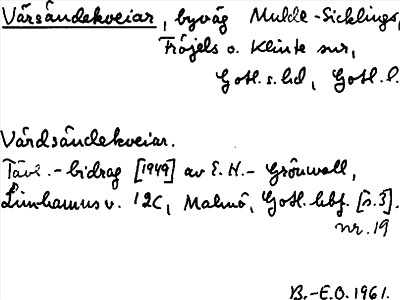 Värsändekveiar, byväg Mulde-Sicklings,
Fröjels o. Klinte snr,
Gotl. s. hd, Gotl. l.
Värdsändekveiar.
Tävl.-bidrag [1949] av E. H. Grönwall,
Limhamnsv. 12C, Malmö, Gotl. hbf. [s.3].
nr. 19
B.-E.O. 1961.